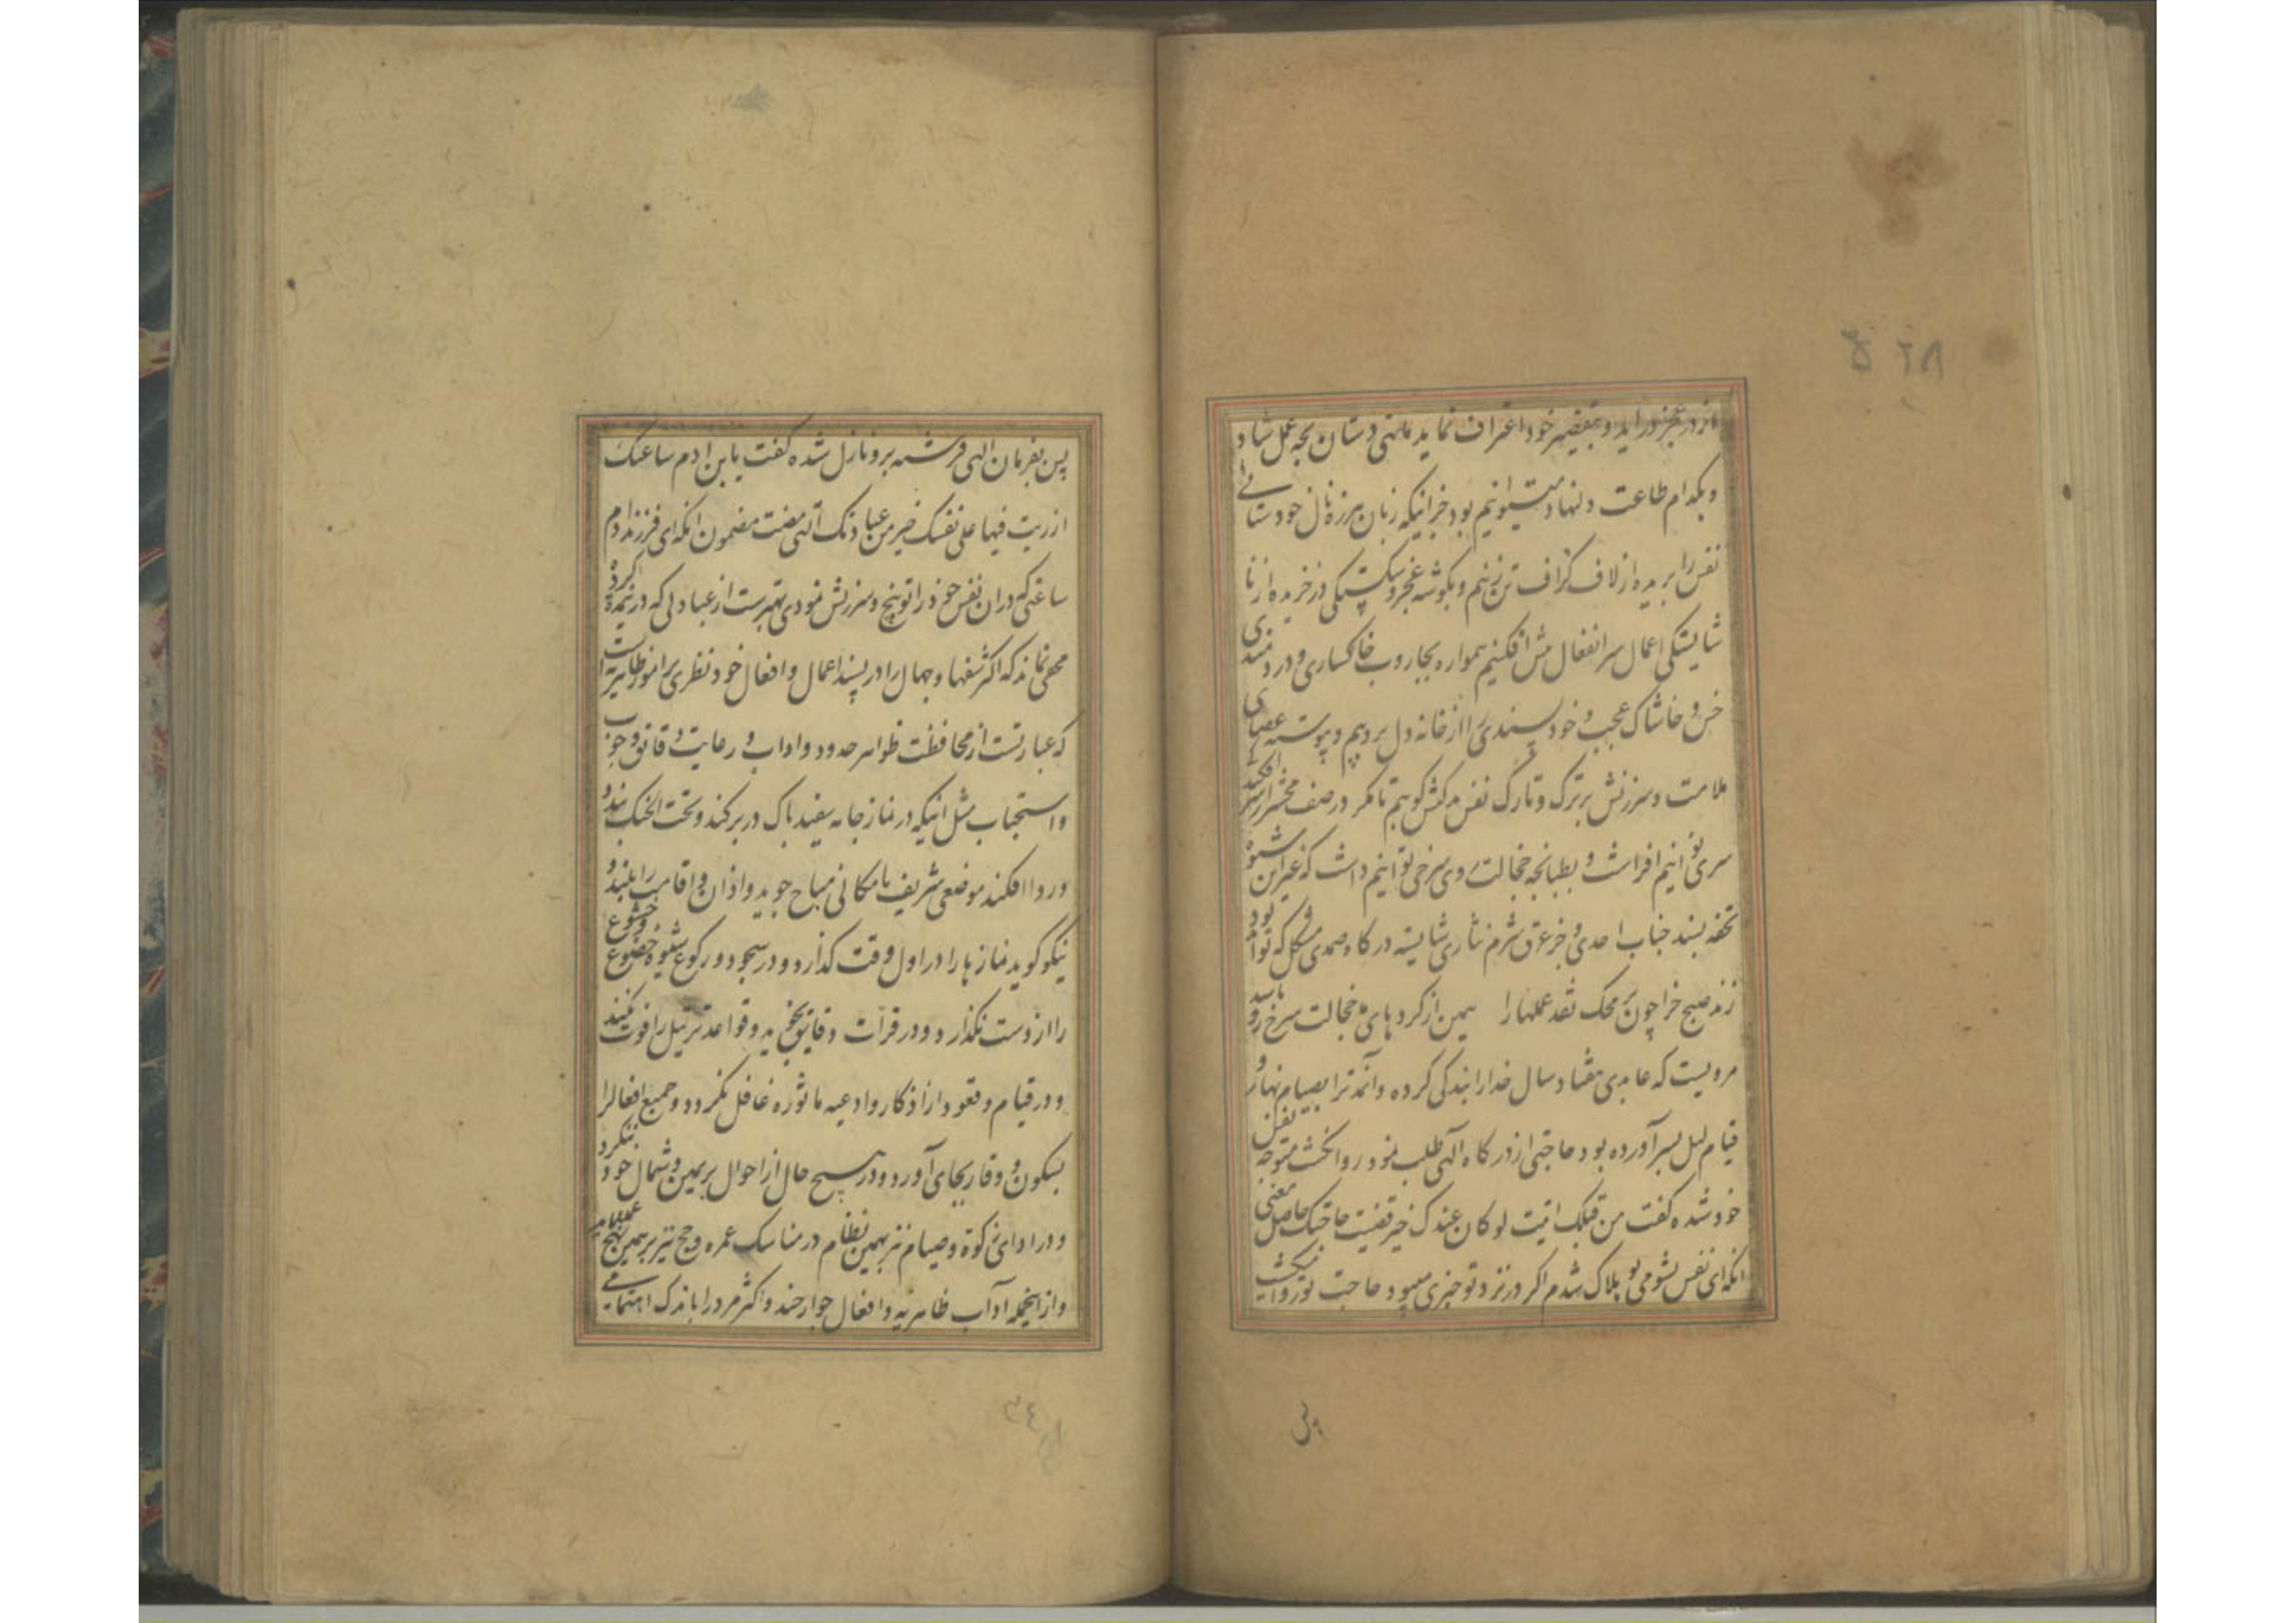 از در عجز درآید و بتقصیر خود اعتراف نماید ما تهی دستان بچه عمل شاد
و بکدام طاعت دلنهاد میتوانیم بود جز انیکه زبان هرزه نال خود ستائی
نفس را بریده از لاف کزاف تن زنیم و بکوشه عجز و شکستکی در خزیده از نا
شایستکی اعمال سر انفعال پیش افکنیم همواره بجاروب خاکساری و دردمندی
خس و خاشاک عجب و خود پسندی را از خانه دل بروبیم و پیوسته عصای
ملامت و سرزنش بر ترک و تارک نفس سرکش کوبیم تا مکر در صف محشر از سر افکندکی
سری توانیم افراشت و بطبانچه خجالت روی سرخی توانیم داشت که غیر این شیوه
تحفه پسند جناب احدی و جز عرق شرم نثاری شایسته درکاه صمدی مشکل که تواند بود
زند صبح جزا چون بر محک نقد عملها را همین از کرد های خجالت سرخ رو باشد
مرویست که عابدی هفتاد سال خدا را بندکی کرده و آنمد ترا بصیام نهار و
قیام لیل بسر آورده بود حاجتی از درکاه الهی طلب نمود روا نکشت متوجه نفس
خود شده کفت من قبلک اتیت لو کان عندک خیر قضیت حاجتک حاصل معنی
انکه ای نفس بشومی تو هلاک شدم اکر در نزد تو خیری میبود حاجت تو روا میکشت
پس
پس بفرمان الهی فرشته برو نازل شده کفت یا بن ادم ساعتک
ازریت فیها علی نفسک خیر من عبادتک التی مضت مضمون انکه ای فرزند ادم
ساعتی که دران نفس خود را توبیخ و سرزنش نمودی بهترست از عبادتی که درینمده کردهٔ
مخفی نماند که اکثر سفها و جهال را در پسند اعمال و افعال خود نظری بر امور ظاهریه است
که عبارتست از محافظت ظواهر حدود و اداب و رعایت دقایق وجوب
و استحباب مثل انیکه در نماز جامه سفید پاک در بر کند و تحت الحنک بندد
و ردا افکند موضعی شریف یا مکانی مباح جوید و اذان و اقامت را بلند و
نیکو کوید نماز ها را در اول وقت کذارد و در سجود و رکوع شیوه خضوع و خشوع
را از دست نکذارد و در قرات دقایق تجوید و قواعد ترتیل را فوت نکند
و در قیام و قعود از اذکار و ادعیه ماثوره غافل نکردد و جمیع افعالرا
بسکون و وقار بجای آورد و در هیچ حال از احوال بر یمین و شمال خود ننکرد
و در ادای زکوة و صیام نیز بهمین نظام در مناسک عمره و حج نیز بر همین نهج عمل نماید
و ازاینجمله اداب ظاهریه و افعال جوارحند و اکثر مردرا باندک اهتمامی